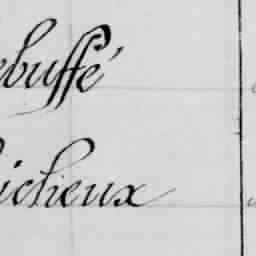 ebuffé
icheux